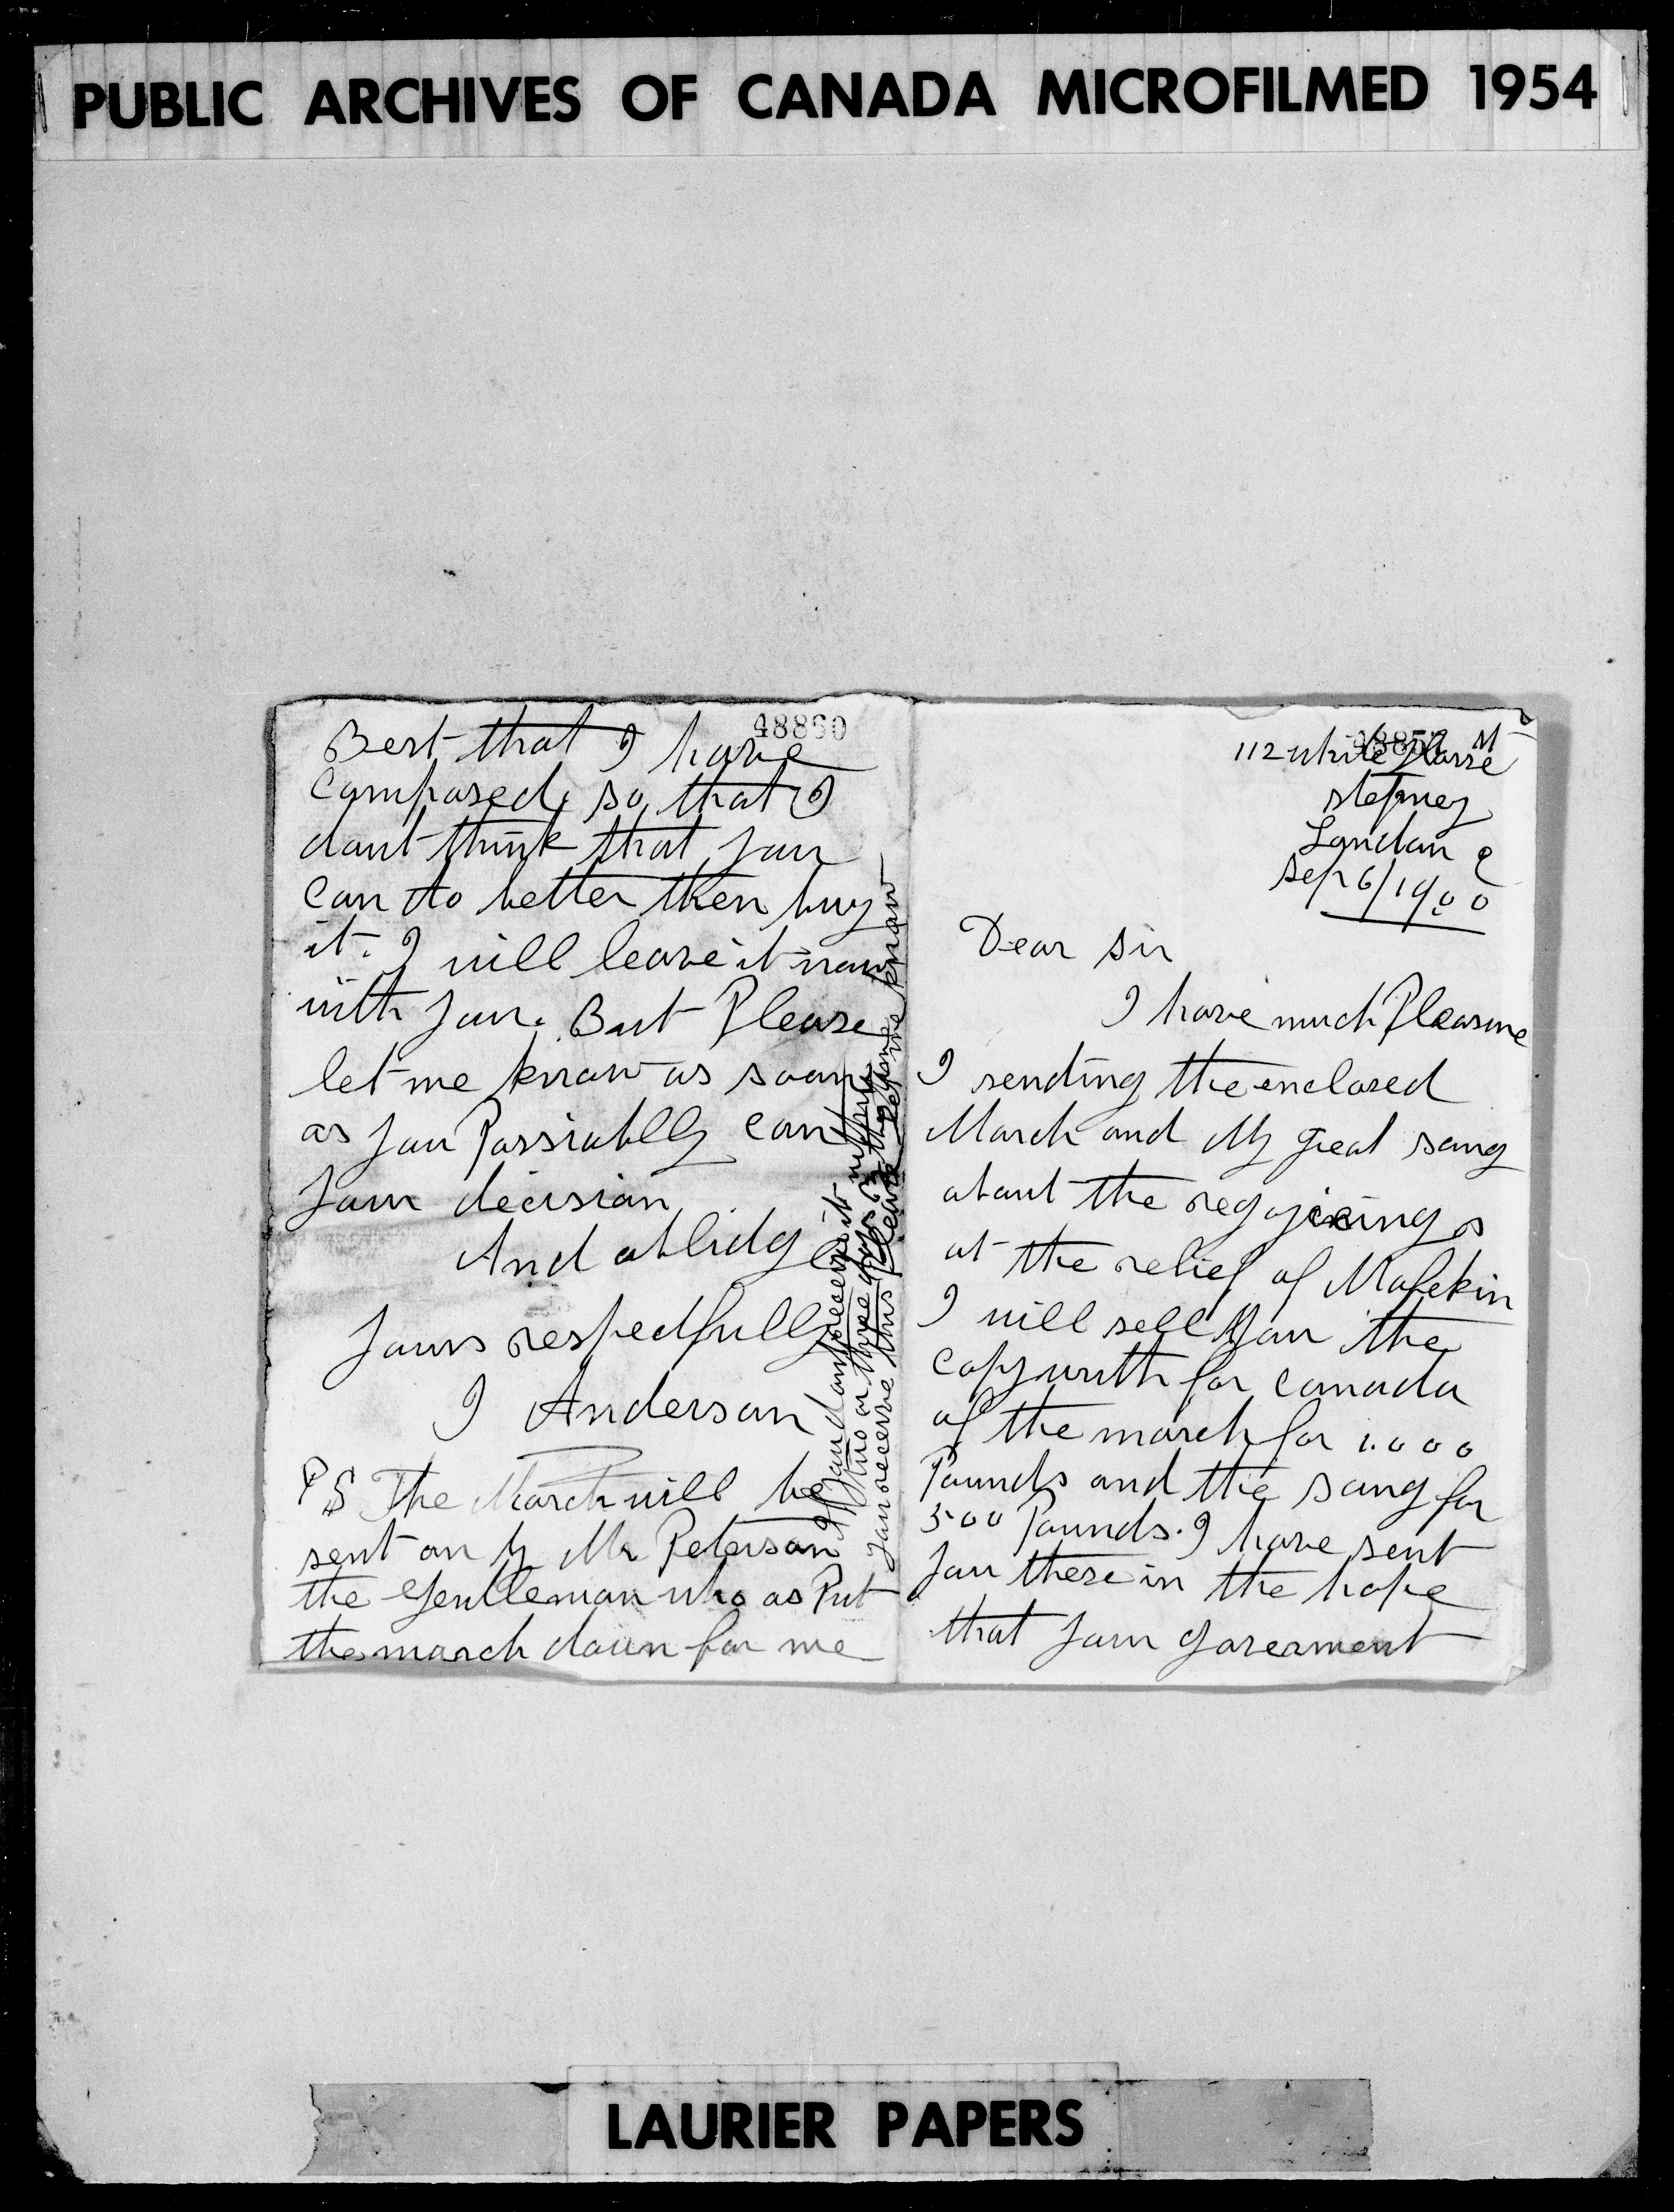 PUBLIC ARCHIVES OF CANADA MICROFILMED 1954
48890
Best that I have
composed, so that I
dont think that you
can do better then buy
it. I will leave it now
with you. But Please
let me know as soon
as you Possiablly can
your decision
And ablidge
yours respectfully
I Anderson
PS The March will be
sent on by Mr Peterson
the Gentleman who as Put
the march down for me
If you dont receeve it within
two or three days the time
you receeve this Please let me know
112 white Horse st
stepney
London e
Sep 6/1900
Dear sir
I have much Pleasure
I sending the enclosed
March and My great song
about the regojeing s
at the relief of Mafekin
I will sell you the
copywrith for canada
of the march for 1.000
Pounds and the song for
500 Pounds. I have sent
you these in the hope
that your goverment
LAURIER PAPERS